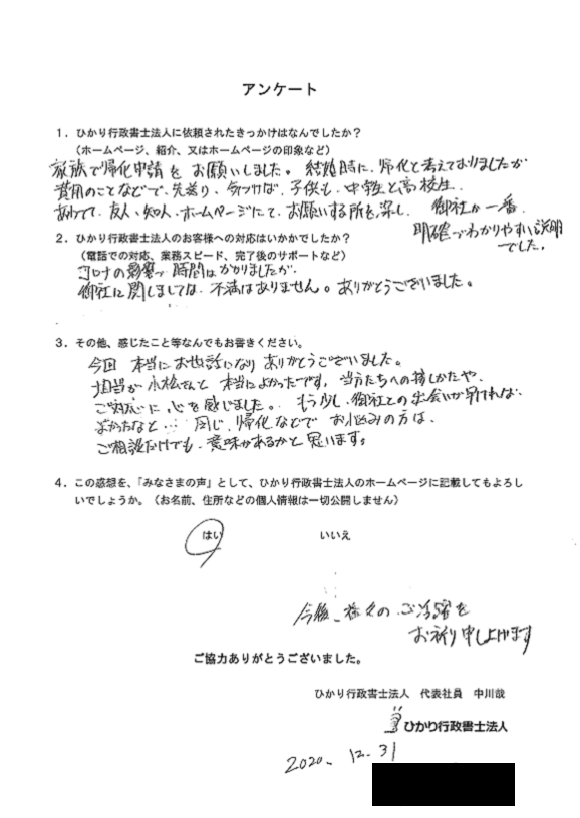 アンケート
1．ひかり行政書士法人に依頼されたきっかけはなんでしたか？
（ホームページ、紹介、又はホームページの印象など）
家族で帰化申請を お願いしました。 結婚時に、帰化と考えておりましたが
費用のことなどで、先送り、気づけば、子供も、中学生と高校生。
あわてて、友人、知人、ホームページにて、お願いする所を探し、 御社が一番
明確でわかりやすい説明
でした。
2．ひかり行政書士法人のお客様への対応はいかがでしたか？
（電話での対応、業務スピード、完了後のサポートなど）
コロナの影響で 時間はかかりましたが、
御社に関しましては、不満はありません。ありがとうございました。
3．その他、感じたこと等なんでもお書きください。
今回 本当にお世話になり ありがとうございました。
担当が 小松さんと 本当によかったです。当方たちへの接しかたや、
ご対応に 心を感じました。 もう少し、御社との出会いが早ければ、
よかったなと… 同じ、帰化などで お悩みの方は、
ご相談だけでも、意味があるかと思います。
4．この感想を、「みなさまの声」として、ひかり行政書士法人のホームページに記載してもよろし
いでしょうか。（お名前、住所などの個人情報は一切公開しません）
はい いいえ
今後、様々の ご活躍を
お祈り申し上げます
ご協力ありがとうございました。
ひかり行政書士法人 代表社員 中川哉
ひかり行政書士法人
2020. 12. 31